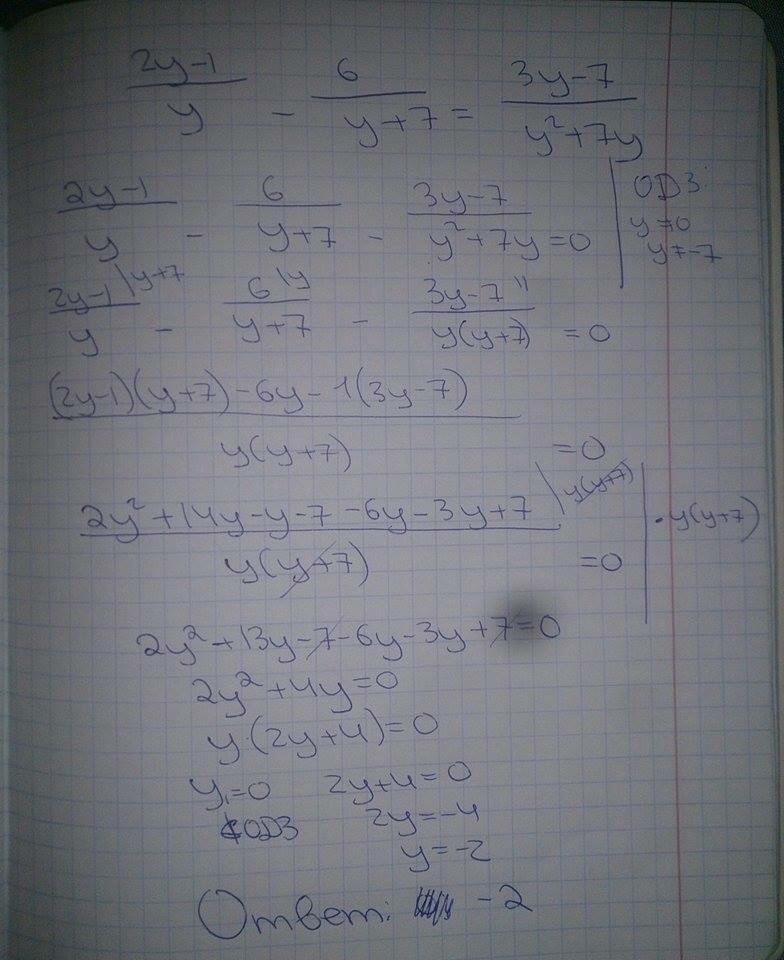 (2y-1)/y - 6/(y+7) = (3y-7)/(y²+7y)
(2y-1)/y - 6/(y+7) - (3y-7)/(y²+7y) = 0 | OD3:
y≠0
y≠-7
(2y-1)/y |y+7 - 6/(y+7) |y - (3y-7)/(y(y+7)) |1 = 0
((2y-1)(y+7)-6y-1(3y-7))/(y(y+7)) = 0
(2y²+14y-y-7-6y-3y+7)/(y(y+7)) \y(y+7) = 0 | ·y(y+7)
2y²+13y-7-6y-3y+7=0
2y²+4y=0
y(2y+4)=0
y₁=0 2y+4=0
∉OD3 2y=-4
y=-2
Ответ: -2